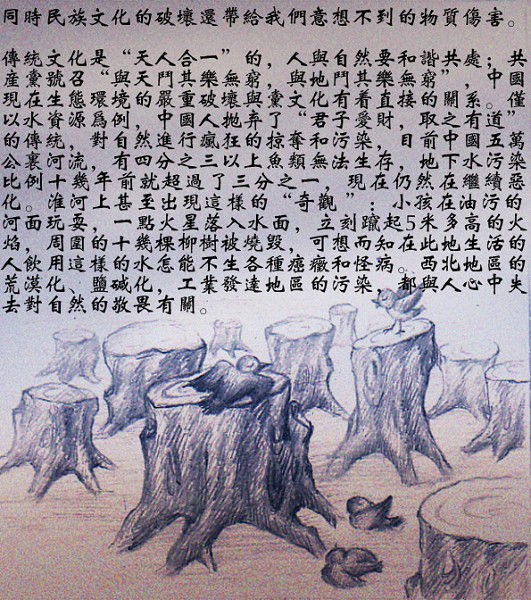 同時民族文化的破壞還帶給我們意想不到的物質傷害。
傳統文化是“天人合一”的，人與自然要和諧共處；共
産黨號召“與天鬥其樂無窮，與地鬥其樂無窮”，中國
現在生態環境的嚴重破壞與黨文化有着直接的關系。僅
以水資源爲例，中國人抛弃了“君子愛財，取之有道”
的傳統，對自然進行瘋狂的掠奪和污染，目前中國五萬
公裏河流，有四分之三以上魚類無法生存，地下水污染
比例十幾年前就超過了三分之一，現在仍然在繼續惡
化。淮河上甚至出現這樣的“奇觀”：小孩在油污的
河面玩耍，一點火星落入水面，立刻躥起5米多高的火
焰，周圍的十幾棵柳樹被燒毀，可想而知在此地生活的
人飲用這樣的水怎能不生各種癌癥和怪病。西北地區的
荒漠化、鹽碱化，工業發達地區的污染，都與人心中失
去對自然的敬畏有關。